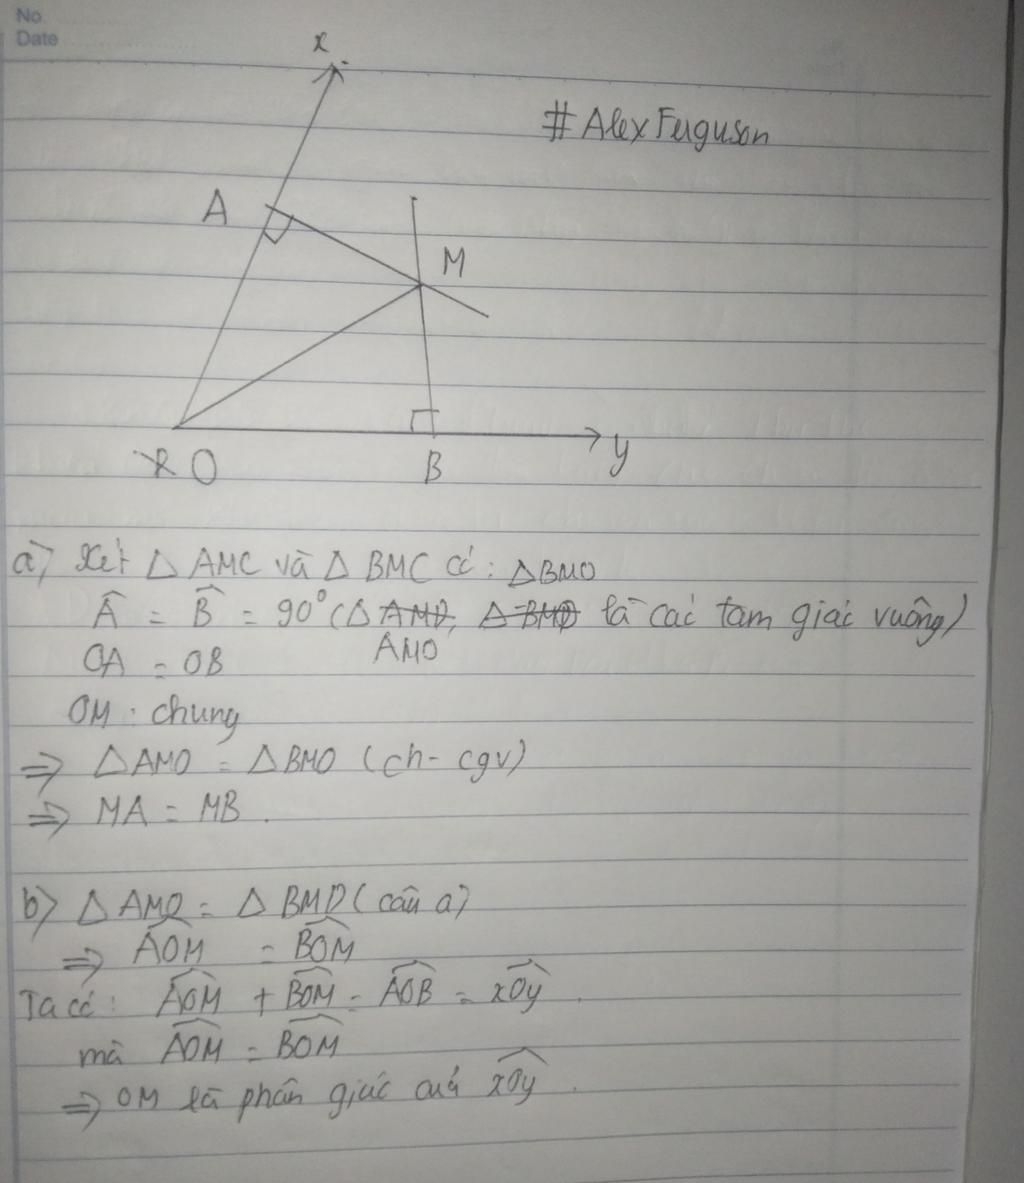 No.
Date
x
#AlexFerguson
A
M
O
B
y
a) Xét △ AMC và △ BMC có: △BMO
Â = B̂ = 90° (△ AMO, △ BMO là các tam giác vuông)
AMO
OA = OB
OM: chung
⇒ △AMO = △BMO (ch - cgv)
⇒ MA = MB.
b) △ AMO = △ BMO (câu a)
⇒ AOM = BOM
Ta có: AOM + BOM = AOB = xOy.
mà AOM = BOM
⇒ OM là phân giác của xOy.